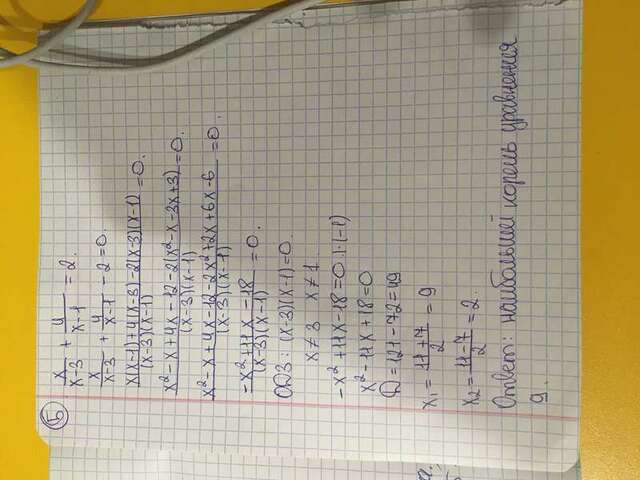 Б
x/(x-3) + 4/(x-1) = 2.
x/(x-3) + 4/(x-1) - 2 = 0.
(x(x-1)+4(x-3)-2(x-3)(x-1))/((x-3)(x-1)) = 0.
(x²-x+4x-12-2(x²-x-3x+3))/((x-3)(x-1)) = 0.
(x²-x+4x-12-2x²+2x+6x-6)/((x-3)(x-1)) = 0.
(-x²+11x-18)/((x-3)(x-1)) = 0.
ОДЗ: (x-3)(x-1)=0.
x≠3 x≠1.
-x²+11x-18=0 |·(-1)
x²-11x+18=0
D=121-72=49
x₁ = (11+7)/2 = 9
x₂ = (11-7)/2 = 2.
Ответ: наибольший корень уравнения
9.